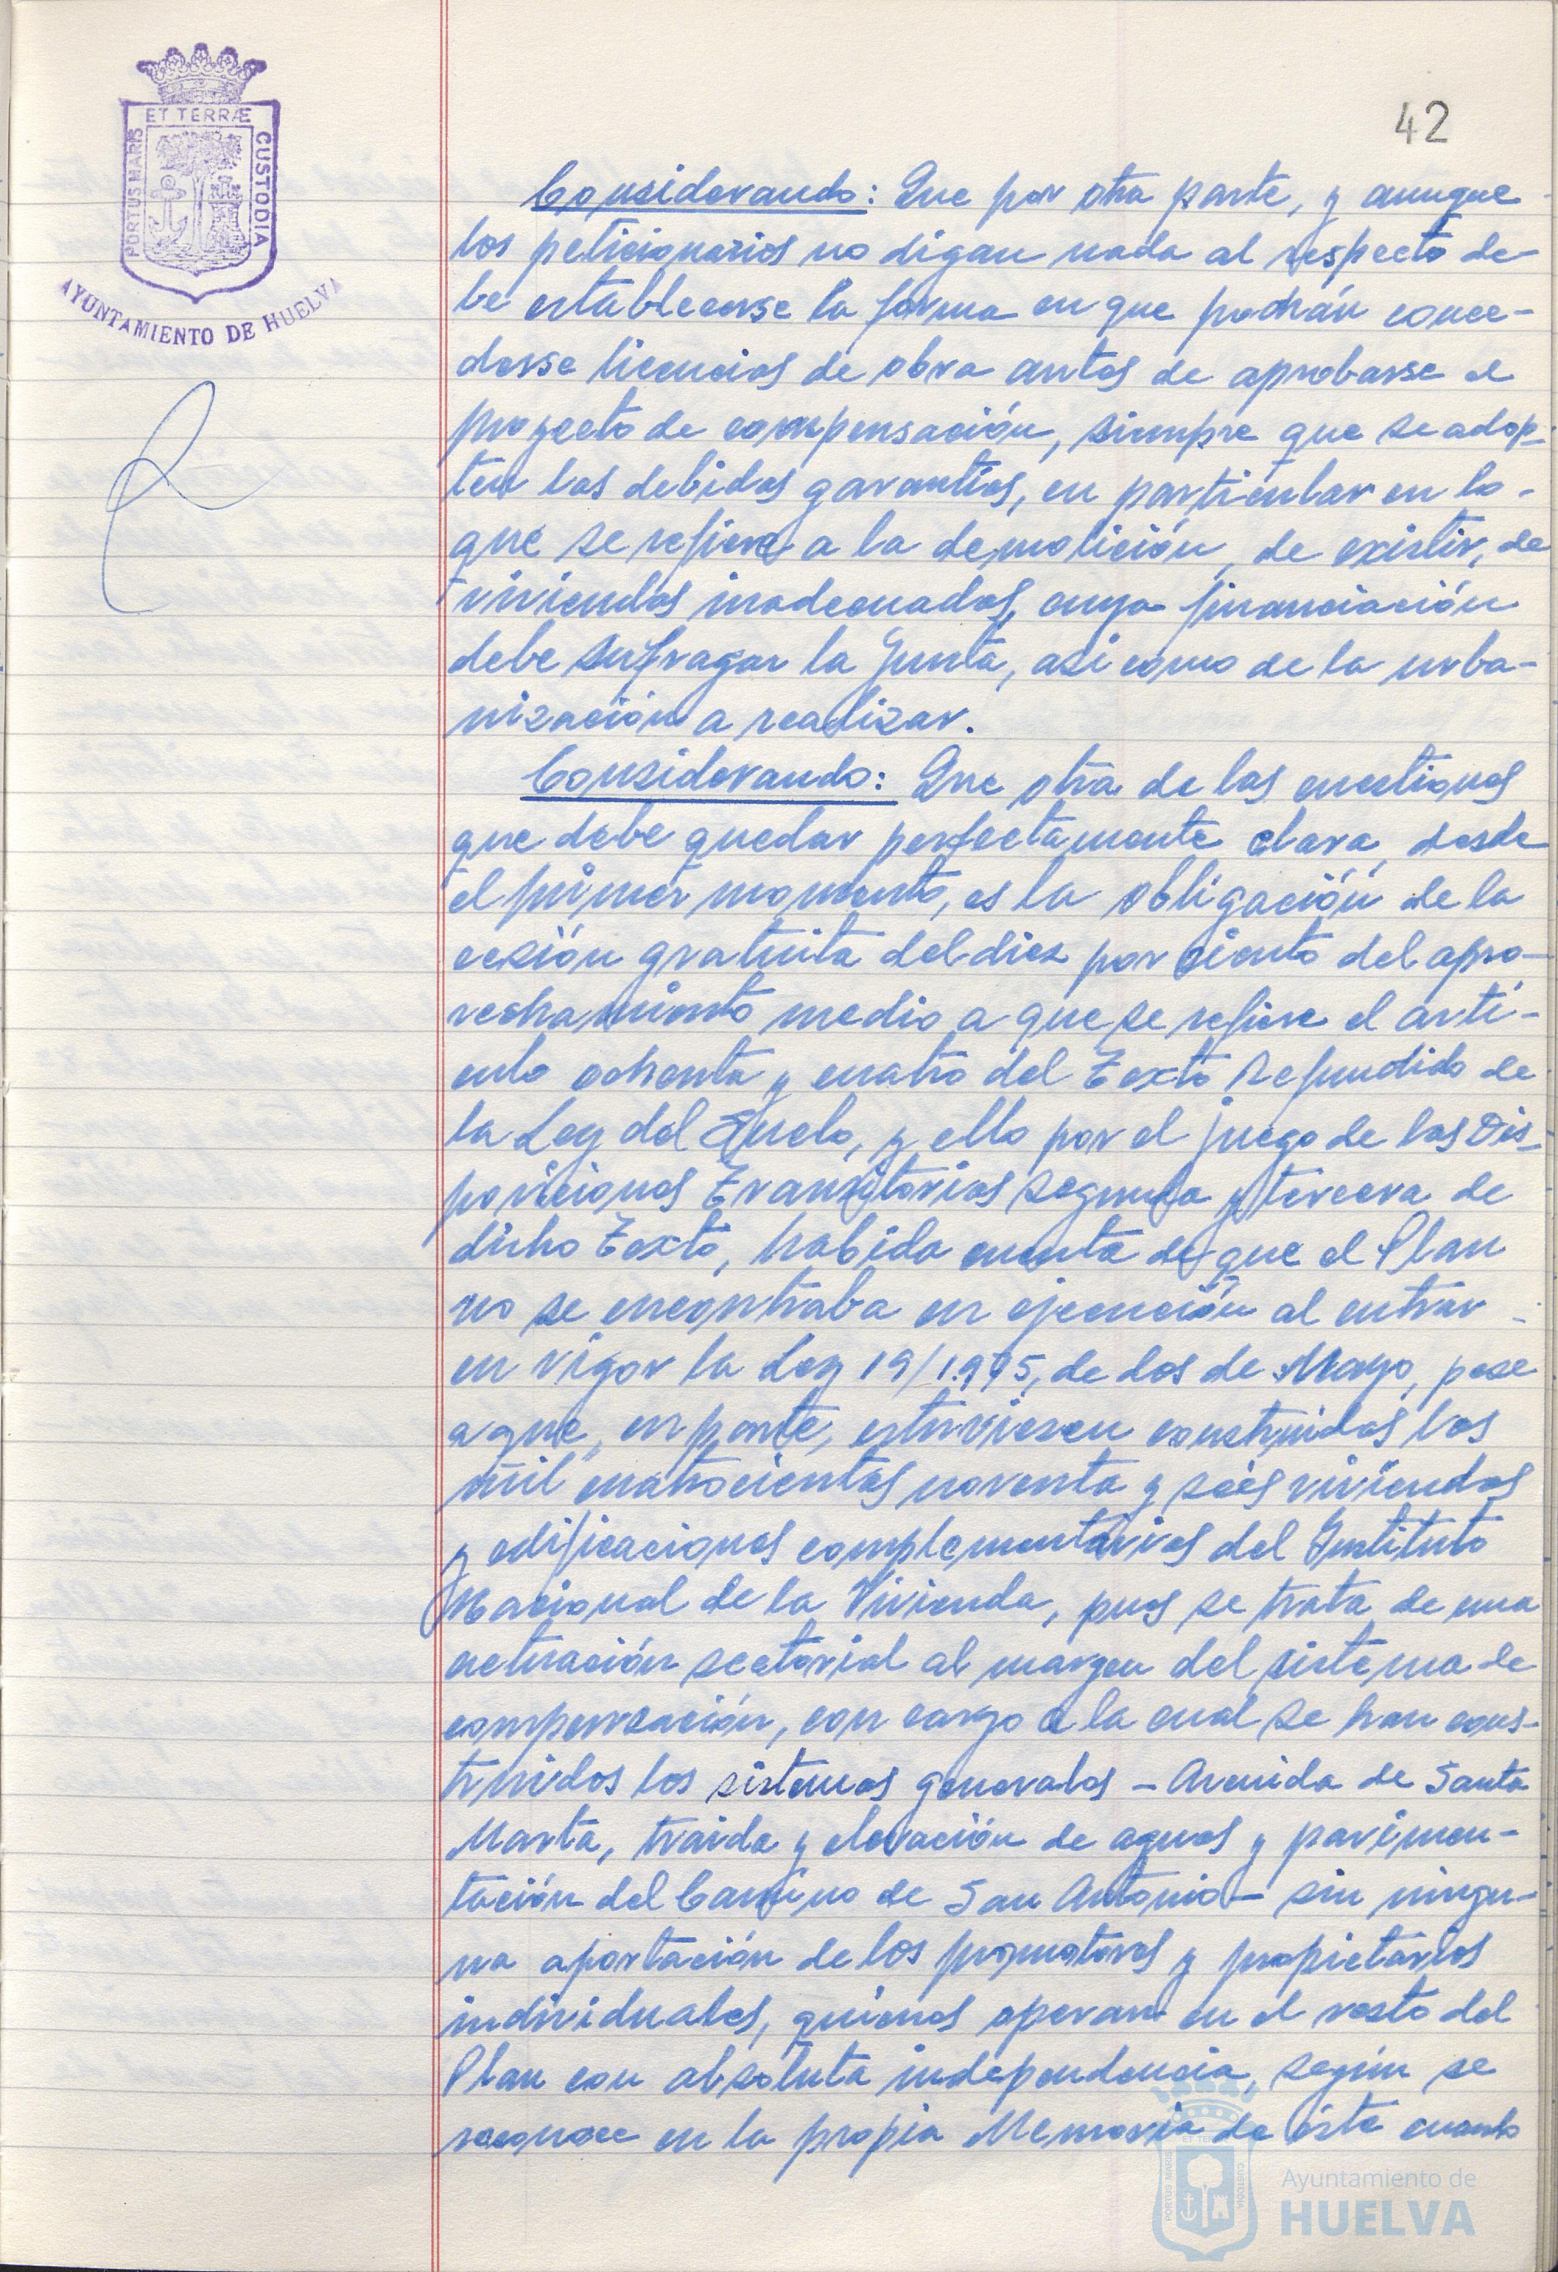 ET TERRÆ
PORTUS MARIS
CUSTODIA
AYUNTAMIENTO DE HUELVA
42
Considerando: Que por otra parte, y aunque
los peticionarios no digan nada al respecto de-
be establecerse la forma en que podrán conce-
derse licencias de obra antes de aprobarse el
proyecto de compensación, siempre que se adop-
ten las debidas garantías, en particular en lo-
que se refiere a la demolición, de existir, de
viviendas inadecuadas, cuya financiación
debe sufragar la Junta, asi como de la urba-
nización a realizar.
Considerando: Que otra de las cuestiones
que debe quedar perfectamente clara, desde
el primer momento, es la obligación de la
cesión gratuita del diez por ciento del apro-
vechamiento medio a que se refiere el artí-
culo ochenta y cuatro del Texto Refundido de
la Ley del Suelo, y ello por el juego de las Dis-
posiciones Transitorias segunda y tercera de
dicho Texto, habida cuenta de que el Plan
no se encontraba en ejecución al entrar -
en vigor la Ley 19/1.975, de dos de Mayo, pese
a que, en parte, estuviesen construidas las
mil cuatrocientas noventa y seis viviendas
y edificaciones complementarias del Instituto
Nacional de la Vivienda, pues se trata de una
actuación sectorial al margen del sistema de
compensación, con cargo a la cual se han cons-
truidos los sistemas generales - Avenida de Santa
Marta, traida y elevación de aguas y pavimen-
tación del Camino de San Antonio - sin ningu-
na aportación de los promotores y propietarios
individuales, quienes operan en el resto del
Plan con absoluta independencia, según se
reconoce en la propia Memoria de éste cuando
Ayuntamiento de
HUELVA